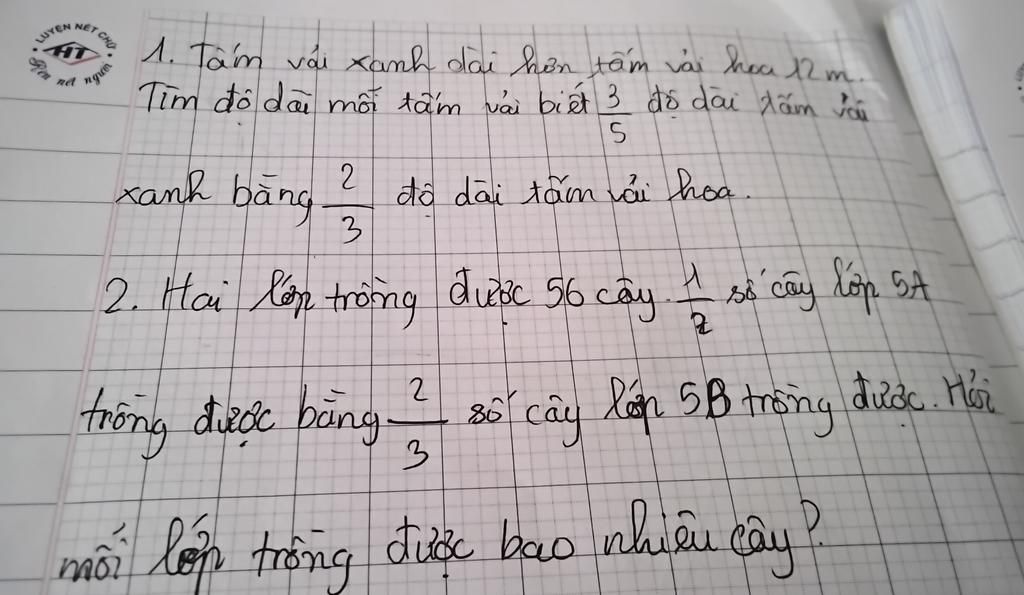 LUYỆN NÉT CHỮ
HT
Rèn nết người
1. Tấm vải xanh dài hơn tấm vải hoa 12 m.
Tìm độ dài mỗi tấm vải biết 3/5 độ dài tấm vải
xanh bằng 2/3 độ dài tấm vải hoa.
2. Hai lớp trồng được 56 cây. 1/2 số cây lớp 5A
trồng được bằng 2/3 số cây lớp 5B trồng được. Hỏi
mỗi lớp trồng được bao nhiêu cây?